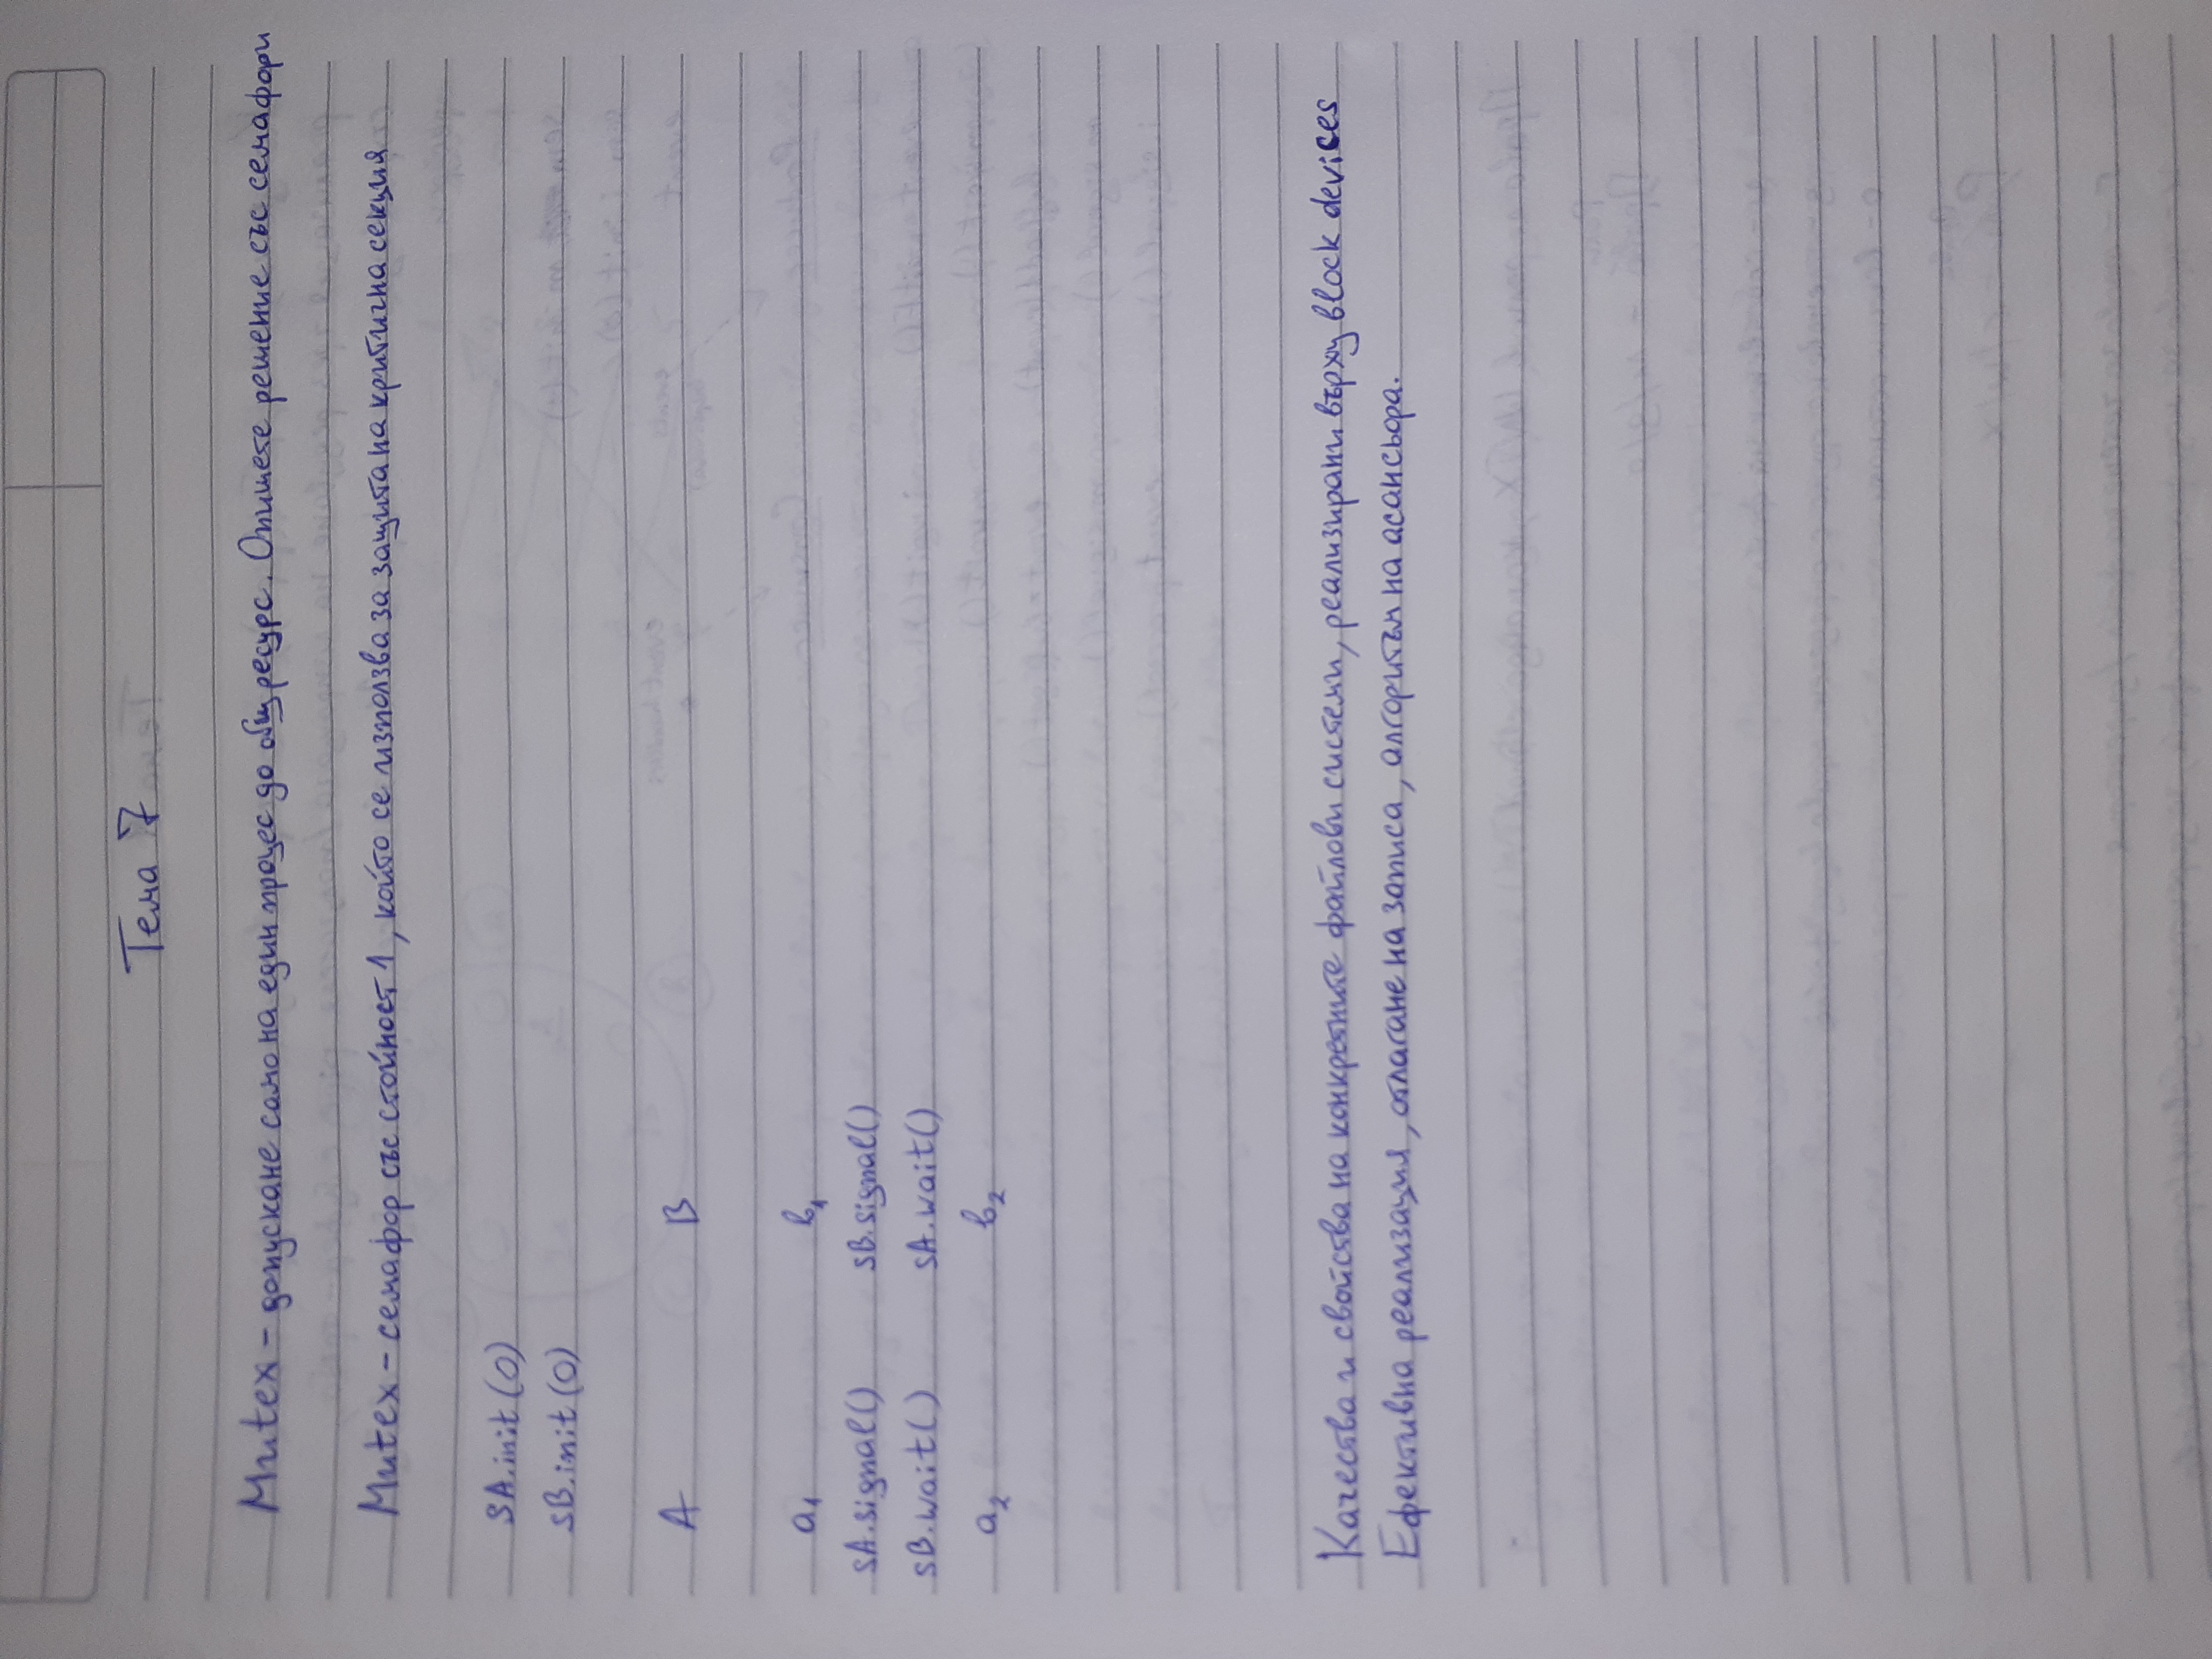 Тема 7
Mutex – допускане само на един процес до общ ресурс. Опишете решение със семафори
Mutex – семафор със стойност 1, който се използва за защита на критична секция
SA.init(0)
SB.init(0)
A B
a₁ b₁
SA.signal() SB.signal()
SB.wait() SA.wait()
a₂ b₂
Качества и свойства на конкретните файлови системи, реализирани върху block devices
Ефективна реализация, отлагане на записа, алгоритъм на асансьора.